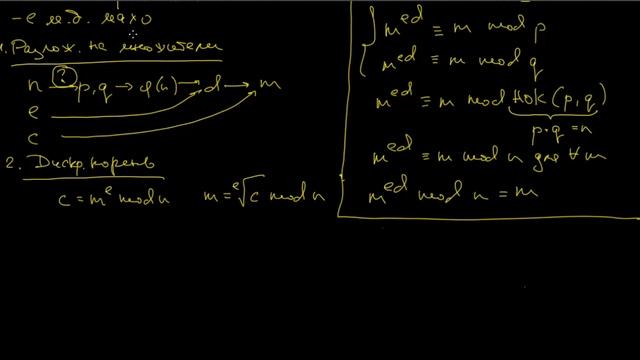 - e м.д. мало
1. Разлож. на множители
n → ? p, q → φ(n) → d → m
e
c
2. Дискр. корень
c = m^e mod n   m = ᵉ√c mod n
m^ed ≡ m mod p
m^ed ≡ m mod q
m^ed ≡ m mod НОК (p, q)
p·q = n
m^ed ≡ m mod n для ∀ m
m^ed mod n = m